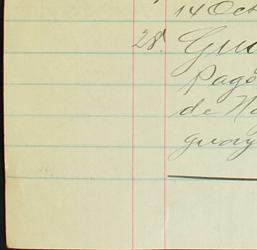 14 Oct
28. Gua
Pagó
de Ha
guay